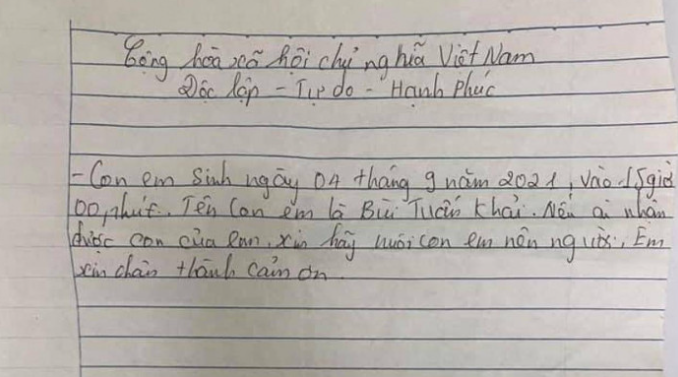 Cộng hòa xã hội chủ nghĩa Việt Nam
Độc lập - Tự do - Hạnh Phúc
- Con em sinh ngày 04 tháng 9 năm 2021, vào 15 giờ
00, phút. Tên con em là Bùi Tuấn Khải. Nếu ai nhận
được con của em, xin hãy nuôi con em nên người, Em
xin chân thành cảm ơn.